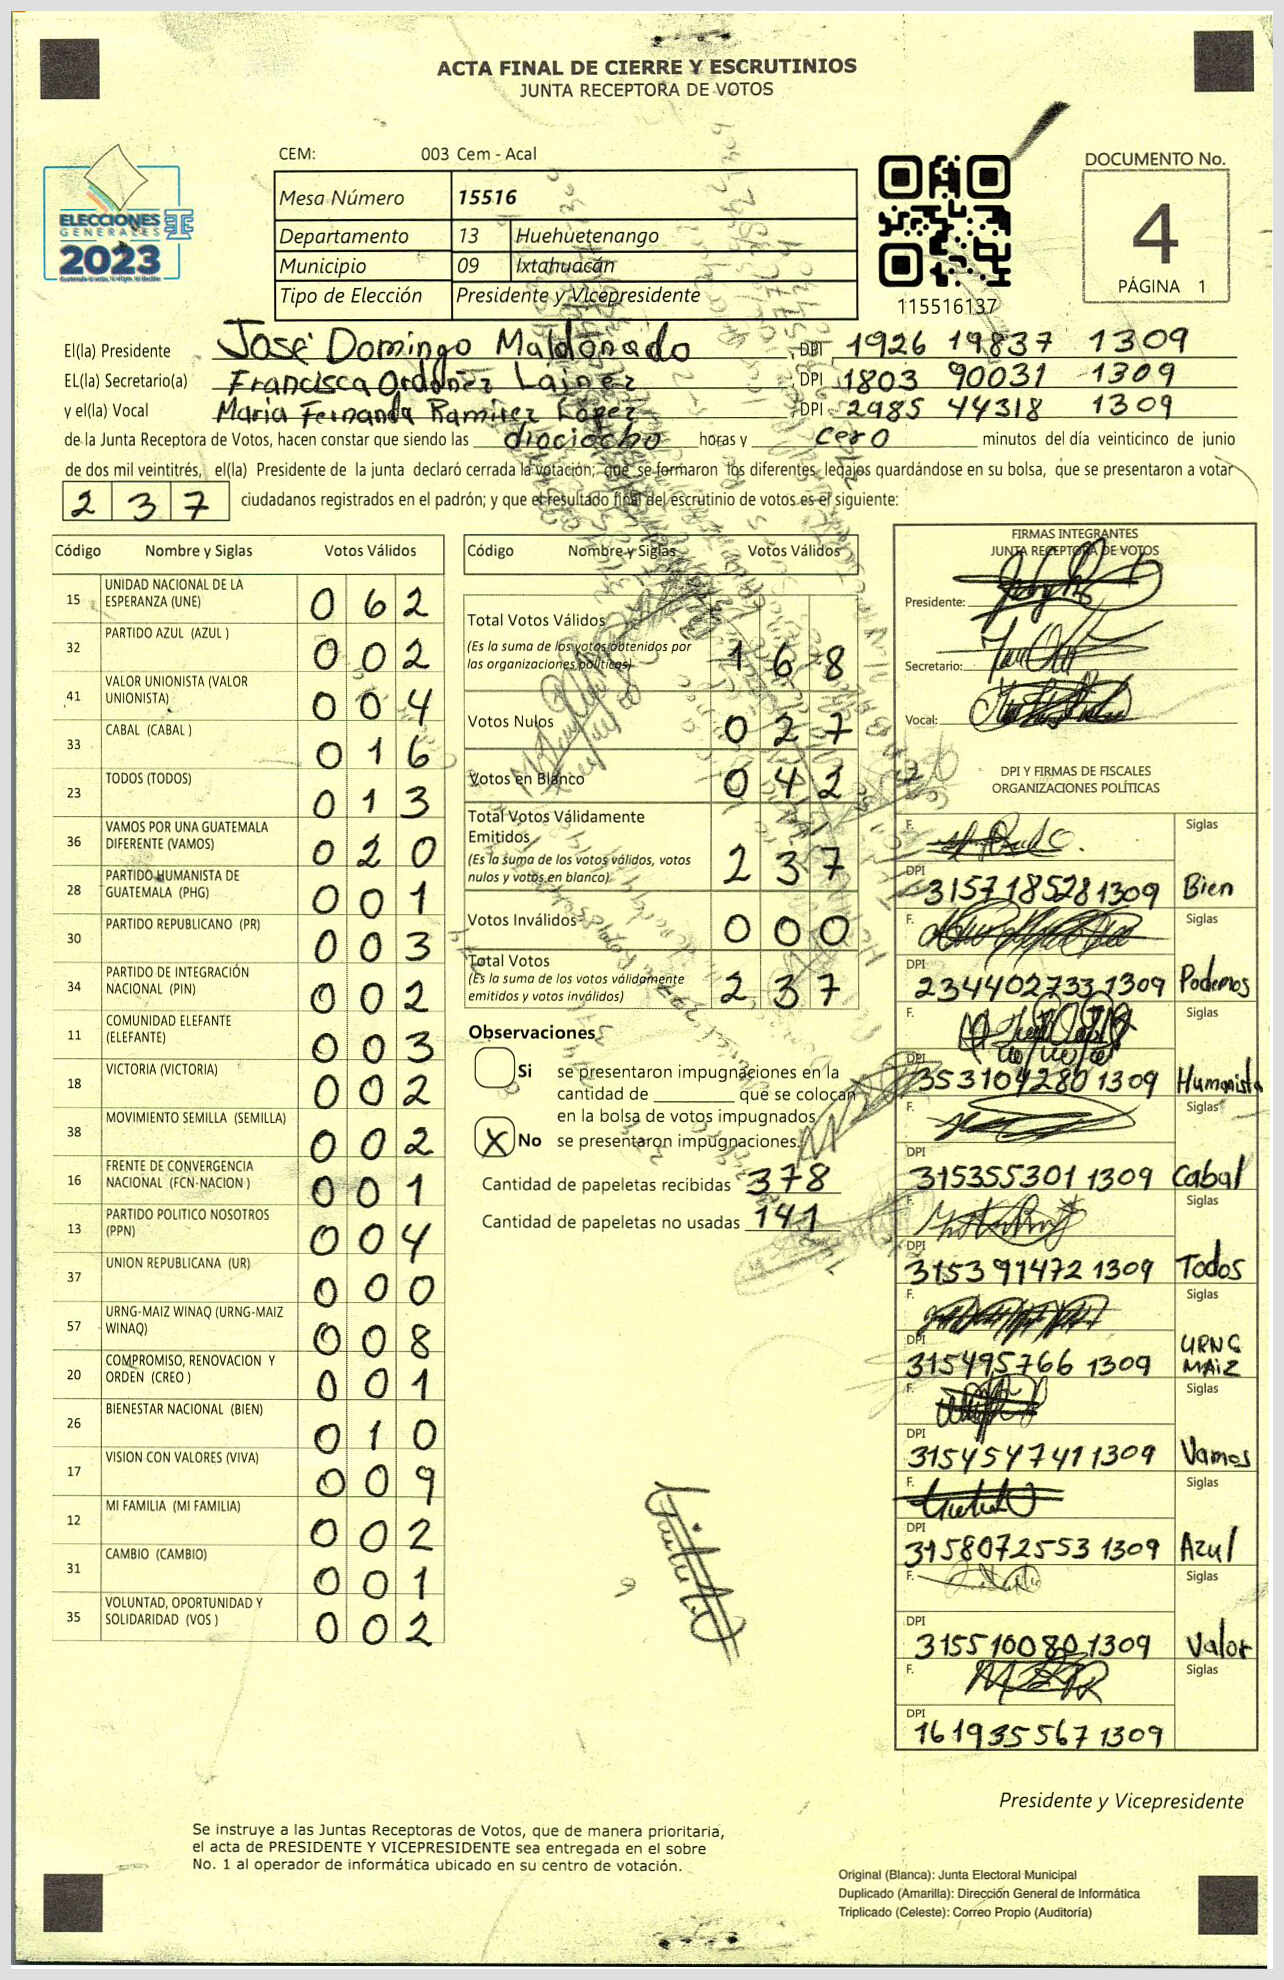 ACTA FINAL DE CIERRE Y ESCRUTINIOS
JUNTA RECEPTORA DE VOTOS
CEM: 003 Cem - Acal
DOCUMENTO No.
4
PÁGINA 1
ELECCIONES
GENERALES
2023
Mesa Número 15516
Departamento 13 Huehuetenango
Municipio 09 Ixtahuacán
Tipo de Elección Presidente y Vicepresidente
115516137
El(la) Presidente José Domingo Maldonado DPI 1926 19837 1309
EL(la) Secretario(a) Francisca Ordoñez Láinez DPI 1803 90031 1309
y el(la) Vocal Maria Fernanda Ramirez López DPI 2985 44318 1309
de la Junta Receptora de Votos, hacen constar que siendo las diociocho horas y cero minutos del día veinticinco de junio
de dos mil veintitrés, el(la) Presidente de la junta declaró cerrada la votación; que se formaron los diferentes legajos guardándose en su bolsa, que se presentaron a votar
237 ciudadanos registrados en el padrón; y que el resultado final del escrutinio de votos es el siguiente:
Código Nombre y Siglas Votos Válidos
15 UNIDAD NACIONAL DE LA ESPERANZA (UNE) 062
32 PARTIDO AZUL (AZUL ) 002
41 VALOR UNIONISTA (VALOR UNIONISTA) 004
33 CABAL (CABAL ) 016
23 TODOS (TODOS) 013
36 VAMOS POR UNA GUATEMALA DIFERENTE (VAMOS) 020
28 PARTIDO HUMANISTA DE GUATEMALA (PHG) 001
30 PARTIDO REPUBLICANO (PR) 003
34 PARTIDO DE INTEGRACIÓN NACIONAL (PIN) 002
11 COMUNIDAD ELEFANTE (ELEFANTE) 003
18 VICTORIA (VICTORIA) 002
38 MOVIMIENTO SEMILLA (SEMILLA) 002
16 FRENTE DE CONVERGENCIA NACIONAL (FCN-NACION ) 001
13 PARTIDO POLITICO NOSOTROS (PPN) 004
37 UNION REPUBLICANA (UR) 000
57 URNG-MAIZ WINAQ (URNG-MAIZ WINAQ) 008
20 COMPROMISO, RENOVACION Y ORDEN (CREO ) 001
26 BIENESTAR NACIONAL (BIEN) 010
17 VISION CON VALORES (VIVA) 009
12 MI FAMILIA (MI FAMILIA) 002
31 CAMBIO (CAMBIO) 001
35 VOLUNTAD, OPORTUNIDAD Y SOLIDARIDAD (VOS ) 002
Código Nombre y Siglas Votos Válidos
Total Votos Válidos 168
(Es la suma de los votos obtenidos por
las organizaciones políticas)
Votos Nulos 027
Votos en Blanco 042
Total Votos Válidamente
Emitidos 237
(Es la suma de los votos válidos, votos
nulos y votos en blanco)
Votos Inválidos 000
Total Votos 237
(Es la suma de los votos válidamente
emitidos y votos inválidos)
Observaciones
Si se presentaron impugnaciones en la
cantidad de que se colocan
en la bolsa de votos impugnados
X No se presentaron impugnaciones.
Cantidad de papeletas recibidas 378
Cantidad de papeletas no usadas 141
FIRMAS INTEGRANTES
JUNTA RECEPTORA DE VOTOS
Presidente:
Secretario:
Vocal:
DPI Y FIRMAS DE FISCALES
ORGANIZACIONES POLÍTICAS
F. Siglas
DPI 3157185281309 Bien
F. Siglas
DPI 2344027331309 Podemos
F. Siglas
DPI 3531042801309 Humanista
F. Siglas
DPI 3153553011309 Cabal
F. Siglas
DPI 3153914721309 Todos
F. Siglas
DPI 3154957661309 URNG MAIZ
F. Siglas
DPI 3154547411309 Vamos
F. Siglas
DPI 31580725531309 Azul
F. Siglas
DPI 3155100801309 Valor
F. Siglas
DPI 1619355671309
Presidente y Vicepresidente
Se instruye a las Juntas Receptoras de Votos, que de manera prioritaria,
el acta de PRESIDENTE Y VICEPRESIDENTE sea entregada en el sobre
No. 1 al operador de informática ubicado en su centro de votación.
Original (Blanca): Junta Electoral Municipal
Duplicado (Amarilla): Dirección General de Informática
Triplicado (Celeste): Correo Propio (Auditoría)